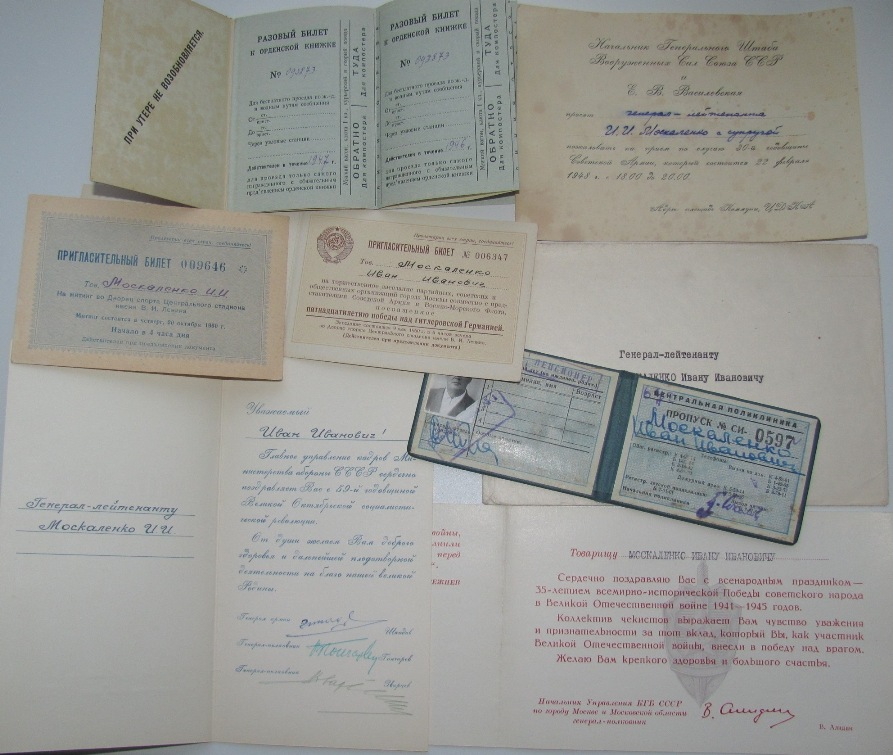 ПРИ УТЕРЕ НЕ ВОЗОБНОВЛЯЕТСЯ.
РАЗОВЫЙ БИЛЕТ
К ОРДЕНСКОЙ КНИЖКЕ
№ 042873
Для бесплатного проезда по ж.-д.
и водным путям сообщения
От ст.
До ст.
Через узловые станции
Действителен в течение 1947 г.
ТУДА
Для компостера
ОБРАТНО
Для компостера
РАЗОВЫЙ БИЛЕТ
К ОРДЕНСКОЙ КНИЖКЕ
№ 042873
Для бесплатного проезда по ж.-д.
и водным путям сообщения
От ст.
До ст.
Через узловые станции
Действителен в течение 1946 г.
ТУДА
Для компостера
ОБРАТНО
Для компостера
Начальник Генерального Штаба
Вооруженных Сил Союза ССР
и
Е. В. Василевская
просят генерал-лейтенанта
И.И. Москаленко с супругой
пожаловать на прием по случаю 30-й годовщины
Советской Армии, который состоится 22 февраля
1948 г. с 18.00 до 20.00.
Адрес: площадь Коммуны, ЦДКА
ПРИГЛАСИТЕЛЬНЫЙ БИЛЕТ 009646
Тов. Москаленко И.И.
На митинг во Дворец спорта Центрального стадиона
имени В. И. Ленина
Митинг состоится в четверг, 20 октября 1960 г.
Начало в 3 часа дня
Действителен при предъявлении документа
Пролетарии всех стран, соединяйтесь!
ПРИГЛАСИТЕЛЬНЫЙ БИЛЕТ № 006347
Тов. Москаленко
Иван Иванович
на торжественное заседание партийных, советских и
общественных организаций города Москвы совместно с пред-
ставителями Советской Армии и Военно-Морского Флота,
посвященное
пятнадцатилетию победы над гитлеровской Германией.
(Действителен при предъявлении документа).
Генерал-лейтенанту
МОСКАЛЕНКО Ивану Ивановичу
ПЕНСИОНЕР
Возраст
ЦЕНТРАЛЬНАЯ ПОЛИКЛИНИКА
ПРОПУСК № СИ- 0597
Москаленко
Иван Иванович
Генерал-лейтенанту
Москаленко И.И
Уважаемый
Иван Иванович!
Главное управление кадров Ми-
нистерства обороны СССР сердечно
поздравляет Вас с 59-й годовщиной
Великой Октябрьской социалисти-
ческой революции.
От души желаем Вам доброго
здоровья и дальнейшей плодотворной
деятельности на благо нашей великой
Родины.
Генерал армии Шкадов
Генерал-полковник Гончаров
Генерал-полковник
войны,
перед
Товарищу МОСКАЛЕНКО ИВАНУ ИВАНОВИЧУ
Сердечно поздравляю Вас с всенародным праздником—
35-летием всемирно-исторической Победы советского народа
в Великой Отечественной войне 1941—1945 годов.
Коллектив чекистов выражает Вам чувство уважения
и признательности за тот вклад, который Вы, как участник
Великой Отечественной войны, внесли в победу над врагом.
Желаю Вам крепкого здоровья и большого счастья.
Начальник Управления КГБ СССР
по городу Москве и Московской области
генерал-полковник
В. Алидин